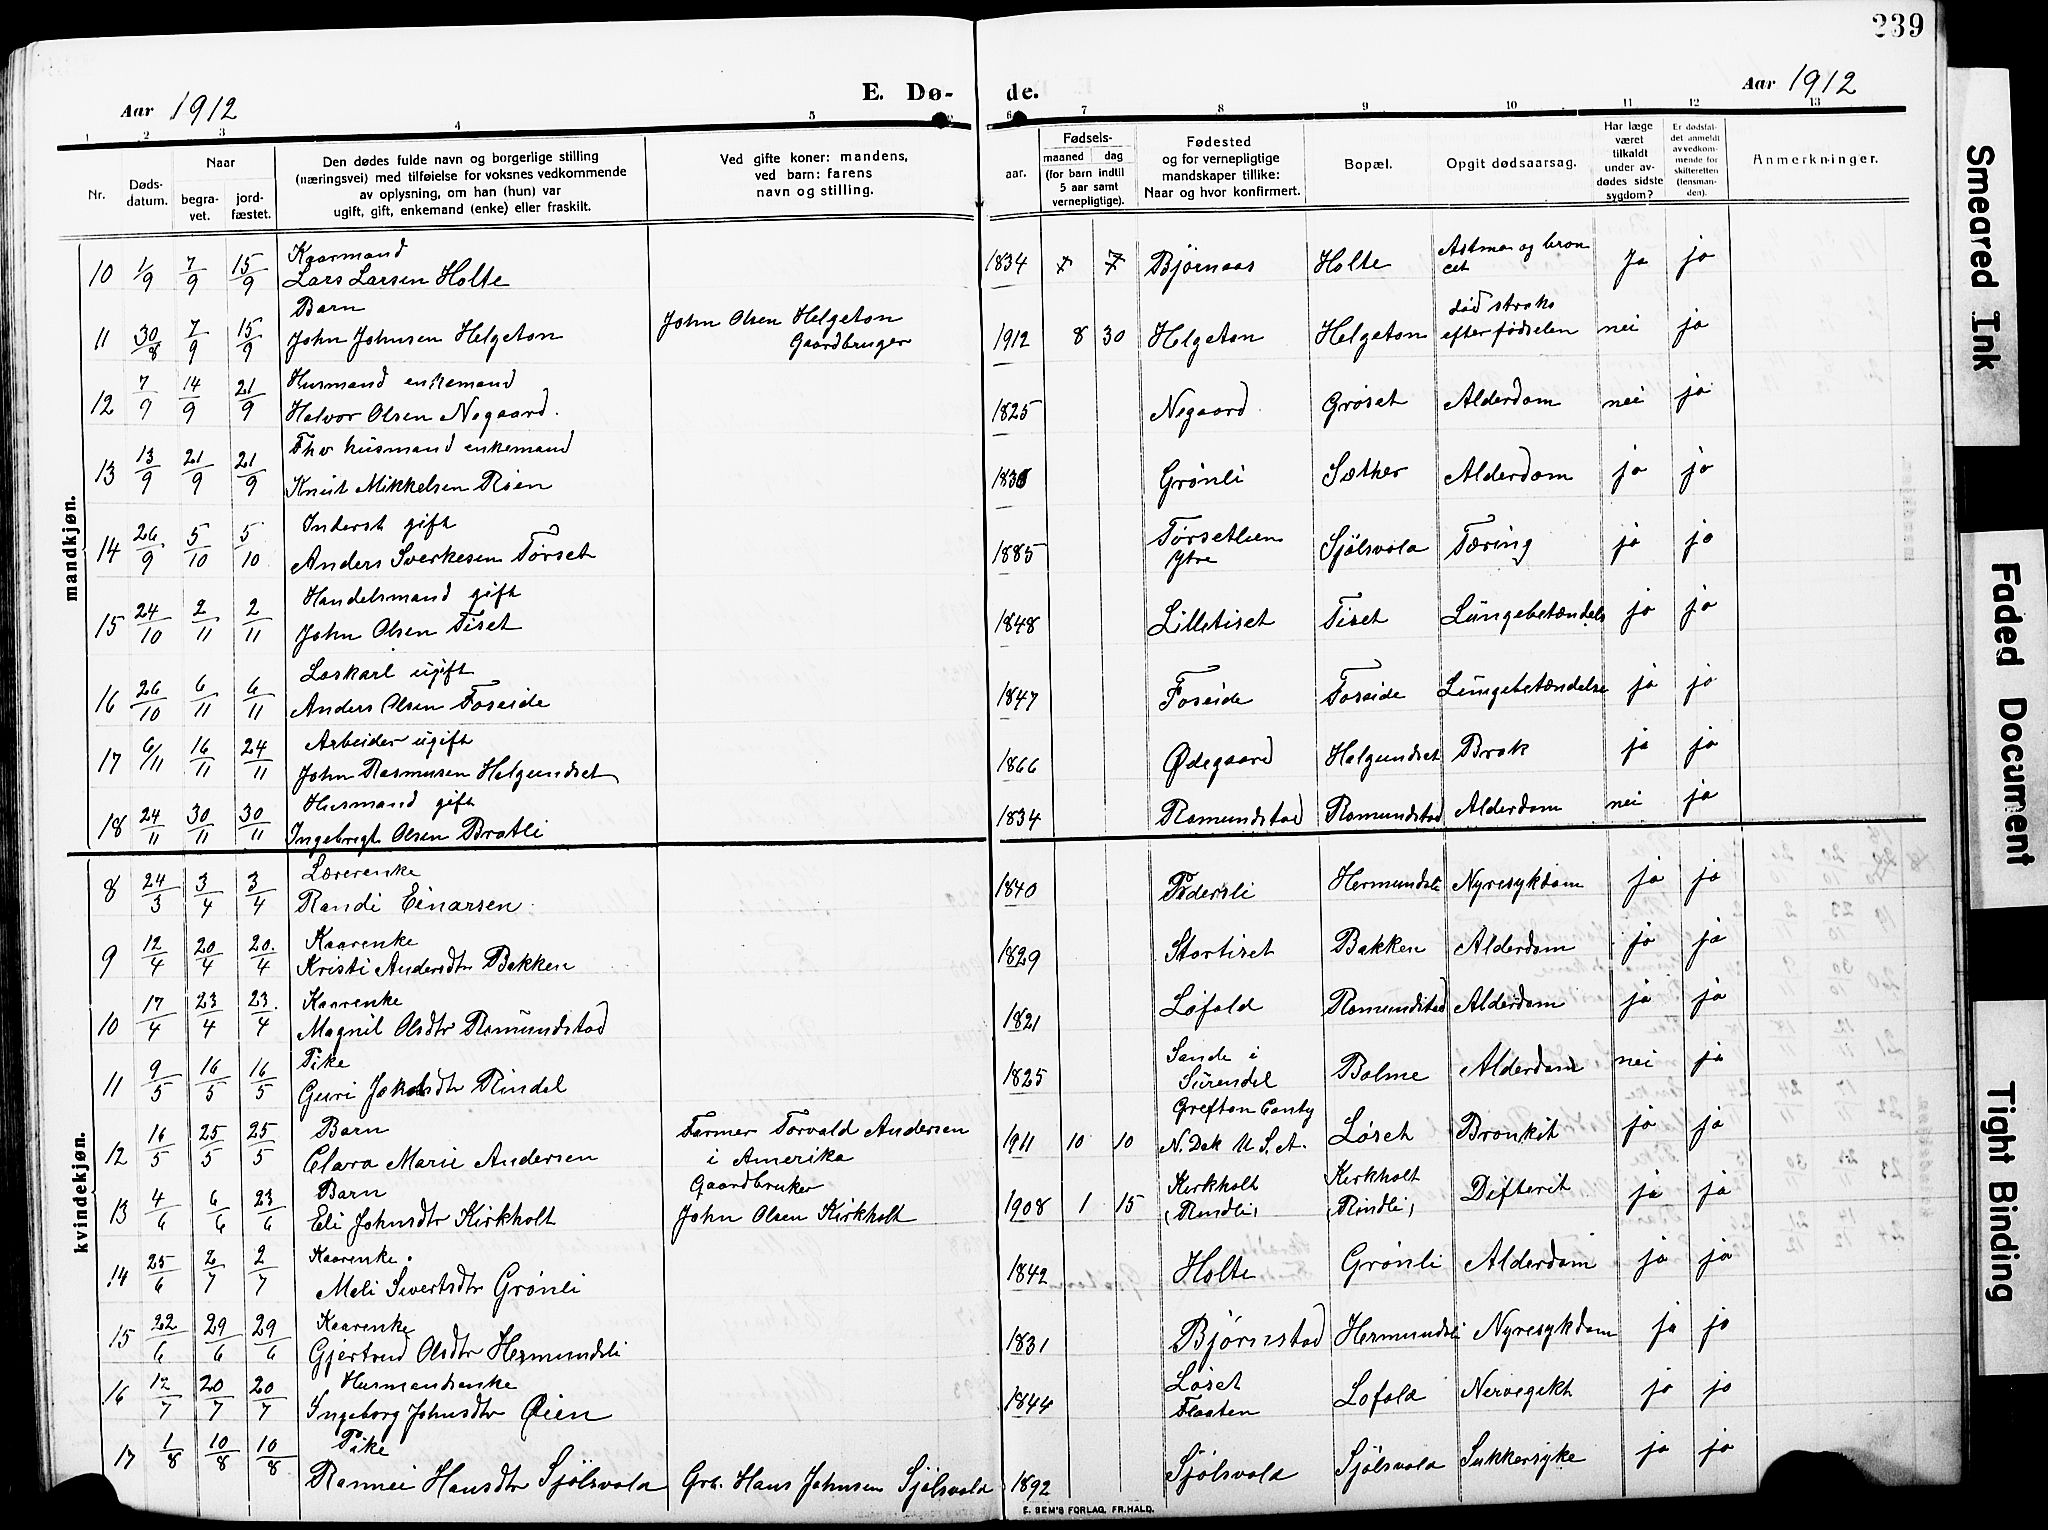 239
Aar 1912
E. Dø-
de.
Aar 1912
1 2 3 4 5 6 7 8 9 10 11 12 13
Nr.
Døds-
datum.
Naar
begra-
vet.
jord-
fæstet.
Den dødes fulde navn og borgerlige stilling
(næringsvei) med tilføielse for voksnes vedkommende
av oplysning, om han (hun) var
ugift, gift, enkemand (enke) eller fraskilt.
Ved gifte koner: mandens,
ved barn: farens
navn og stilling.
aar.
Fødsels-
maaned dag
(for barn indtil
5 aar samt
vernepligtige).
Fødested
og for vernepligtige
mandskaper tillike:
Naar og hvor konfirmert.
Bopæl.
Opgit dødsaarsag.
Har læge
været
tilkaldt
under av-
dødes sidste
sygdom?
Er dødsfal-
det anmeldt
av vedkom-
mende for
skifteretten
(lensman-
den).
Anmerkninger.
mandkjøn.
Kaarmand
10 1/9 7/9 15/9 Lars Larsen Holte 1834 7 7 Bjørnaas Holte Astma og bron
cet Ja ja
Barn
11 30/8 7/9 15/9 John Johnsen Helgeton John Olsen Helgeton
Gaardbruger 1912 8 30 Helgeton Helgeton død straks
efter fødselen nei ja
Husmand enkemand
12 7/9 14/9 21/9 Halvor Olsen Negaard. 1825 Negaard Grøset Alderdom nei ja
Fhv husmand enkemand
13 13/9 21/9 21/9 Knut Mikkelsen Røen Grønli Sæther Alderdom ja ja
Inderst gift
14 26/9 5/10 5/10 Anders Sverkesen Tørset 1885 Tørsetlien
Ytre Sjølsvold Tæring ja ja
Handelsmand gift
15 24/10 2/11 2/11 John Olsen Tiset 1848 Lilletiset Tiset Lungebetændels ja ja
Løskarl ugift
16 26/10 6/11 6/11 Anders Olsen Foseide 1847 Foseide Foseide Lungebetændelse ja ja
Arbeider ugift
17 6/11 16/11 24/11 John Rasmusen Helgundset 1866 Ødegaard Halgundset Brok ja ja
Husmand gift
18 24/11 30/11 30/11 Ingebrigt Olsen Bratli 1834 Romundstad Romundstad Alderdom nei ja
kvindekjøn.
Lærerenke
8 24/3 3/4 3/4 Randi Einarsen 1840 Hermundsli Nyresykdom ja ja
Kaarenke
9 12/4 20/4 20/4 Kristi Andersdtr Bakken 1829 Stortiset Bakken Alderdom ja ja
Kaarenke
10 17/4 23/4 23/4 Magnil Olsdtr Romundstad 1821 Løfald Romundstad Alderdom ja ja
Pike
11 9/5 16/5 16/5 Guri Jakobsdtr Rindal 1825 Sande i
Surendal Bolme Alderdom nei ja
Barn
12 16/5 25/5 25/5 Clara Marie Andersen Farmer Torvald Andersen
i Amerika 1911 10 10 Grefton Conty
N. Dak U. S. A. Løset Bronkit ja ja
Barn
13 4/6 6/6 23/6 Eli Johnsdtr Kirkholt Gaardbruker
John Olsen Kirkholt 1908 1 15 Kirkholt
(Rindli) Kirkholt
(Rindli) Difterit ja ja
Kaarenke.
14 25/6 2/7 2/7 Meli Sivertsdtr Grønli 1842 Holte Grønli Alderdom ja ja
Kaarenke
15 22/6 29/6 29/6 Gjertrud Olsdtr Hermundsli 1831 Bjørnstad Hermundsli Nyresykdom ja ja
Husmandsenke
16 12/7 20/7 20/7 Ingeborg Johnsdtr Øien 1844 Løset
Flaaten Lofald Nervegikt ja ja
Pike
17 1/8 10/8 10/8 Rannei Hansdtr Sjølsvold Grb. Hans Johnsen Sjølsvold 1892 Sjølsvold Sjølsvold Sukkersyke ja ja
E. SEM'S FORLAG, FR.HALD.
Smeared Ink
Faded Document
Tight Binding